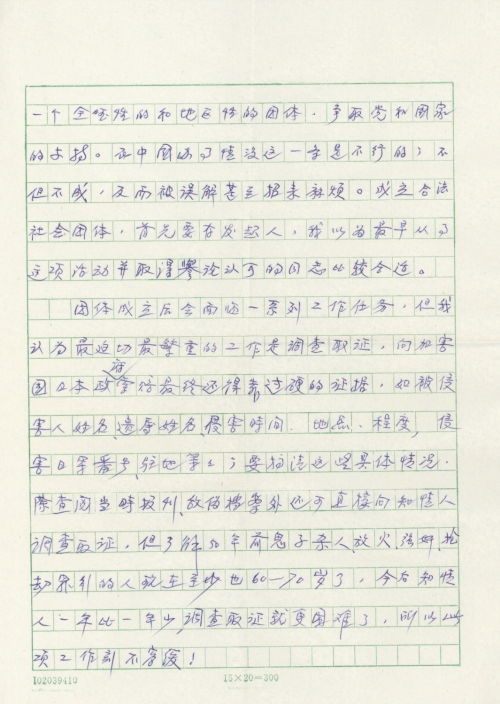 一个全国性的和地区性的团体，争取党和国家
的支持。在中国办事情没这一条是不行的；不
但不成，反而被误解甚至招来麻烦。成立合法
社会团体，首先要有发起人，我以为最早从事
这项活动并取得舆论认可的同志比较合适。
团体成立后会面临一系列工作任务，但我
认为最迫切最繁重的工作是调查取证，向加害
国日本政府索赔最终还得靠过硬的证据，如被侵
害人姓名、遗属姓名、侵害时间、地点、程度，侵
害日军番号、驻地等等；要搞清这些具体情况，
除查阅当时报刊、敌伪档案外还可直接向知情人
调查取证，但了解50年前鬼子杀人、放火、强奸、抢
劫罪行的人现在至少也60—70岁了，今后知情
人一年比一年少，调查取证就更困难了，所以此
项工作刻不容缓！
102039410
15×20=300